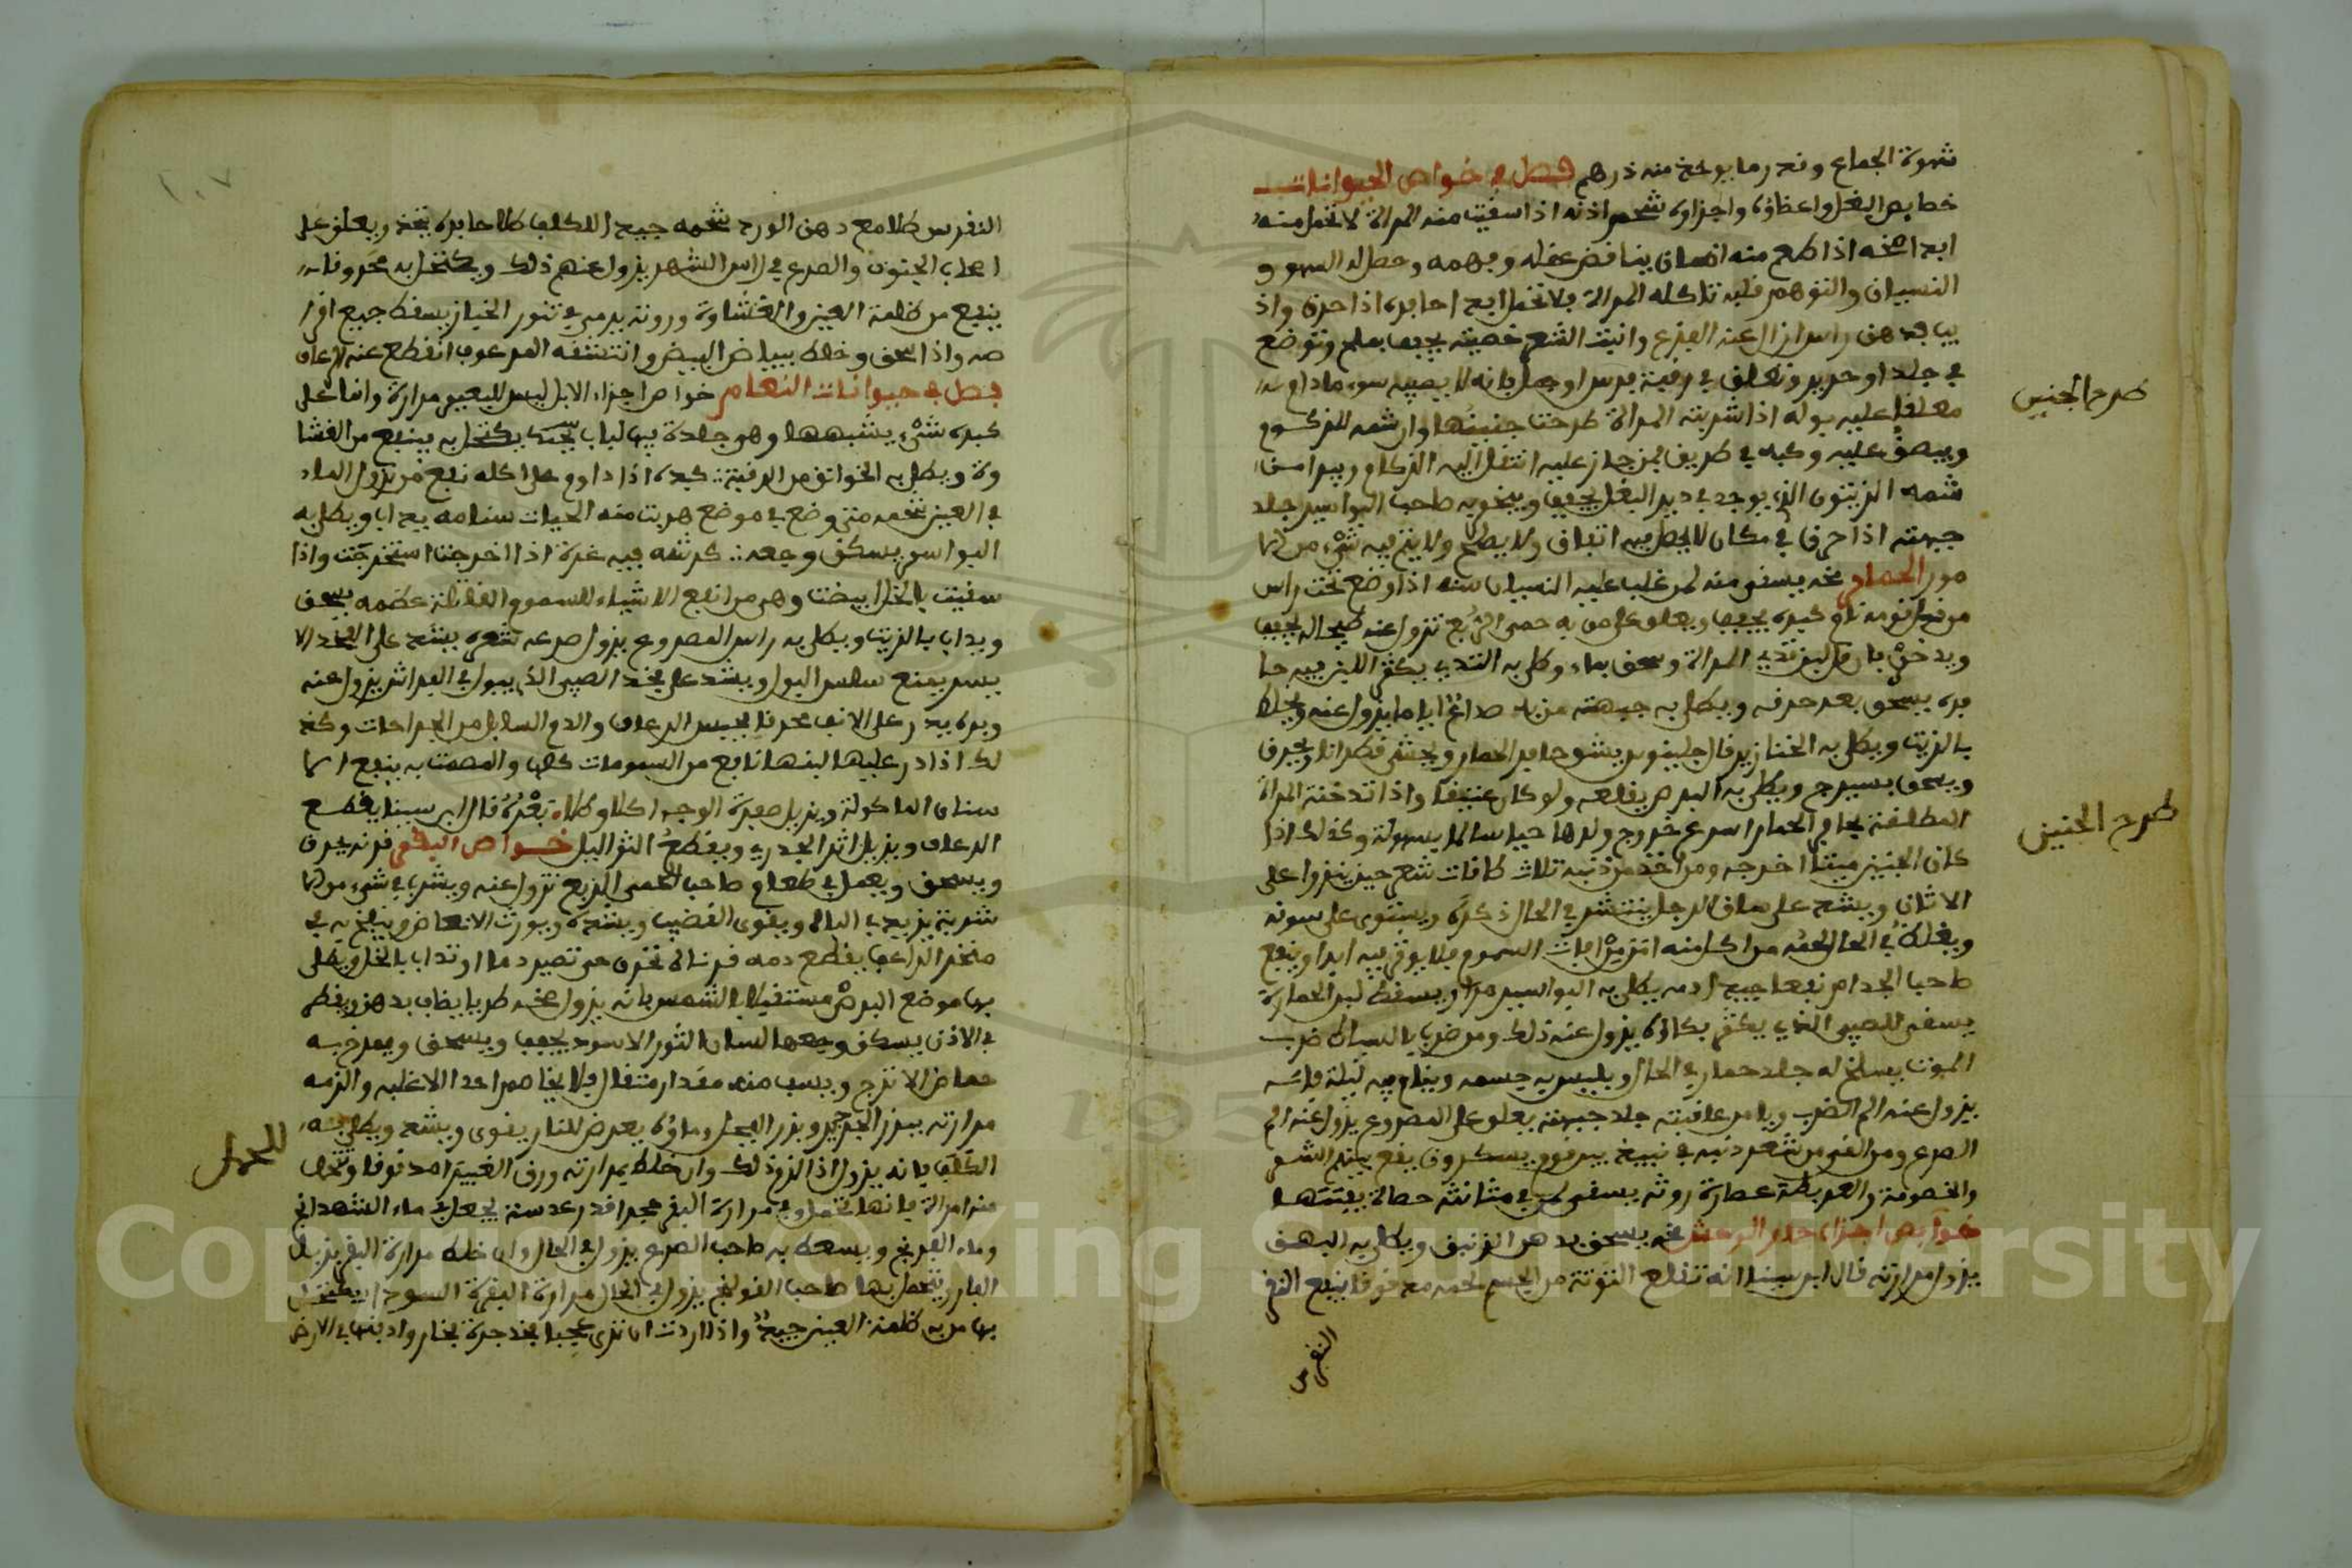 شهوة الجماع وفدر ما يوخذ منه درهم فصل في خواص الحيوانات
خصايص البغل واعضاؤه واجزاوه شحم اذنه اذا سفيت منه المراة لا تحمل منه
ابدا مخه اذا طعم منه انسان ينافض عفله وفهمه وحصل له السهو و
النسيان والتوهم فلبه تاكله المراة فلا تحمل ابدا حافره اذا حرق واذ
يب بدهن راس ازال عنه الفزع وانبت الشعر خصيته يجفف بملح وتوضع
في جلد او حرير وتعلق في رفبة فرس او جمل فانه لا يصيبه سوء مادام
معلفا عليه بوله اذا شربته المراة طرحت جنينها وان شمه المزكوم
وبصق عليه وكبه في طريف فمن جاز عليه انتفل اليه الزكام ويبرا من
شمه الزيتون الذي يوجد في دبر البغل يجفف ويبخر به صاحب البواسير جلد
جبهته اذا حرق في مكان لا يحصل فيه اتفاق ولا يصلح ولا يتم فيه شيء من الا
مور الحمار مخه يسفى منه لمن غلب عليه النسيان سنه اذا وضع تحت راس
من فل نومه نام كبده يجفف ويعلق على من به حمى الربع تزول عنه طحاله يجفف
ويدخن فان فل لبن ثدي المراة وسحق بماء وطلي به الثدي يكثر اللبن فيه حا
فره يسحق بعد حرفه ويطلى به جبهته من به صداع اياما يزول عنه ويخلط
بالزيت ويطلى به الخنازير فال جالينوس يشوى حافر الحمار ويحشى فطرانا ويحرق
ويسحق بسيرج ويطلى به البرص يفلعه ولو كان عتيفا واذا تدخنت المراة
المطلفة بحافر الحمار اسرع خروج ولدها حيا سالما بسهولة وكذلك اذا
كان الجنين ميتا اخرجه ومن اخذ من ذنبه ثلاث طافات شعر حين ينزوا على
الاتان ويشد على ساق الرجل ينتشر في الحال ذكره ويستوى على سوفه
ويغلظ في الحال لحمه من اكل منه امن من افات السموم فلا يوثر فيه ابدا وينفع
صاحب الجذام نفعا جيدا دمه يطلى به البواسير مرارا ويسفط لبن الحمارة
يسفى للصبي الذي يكثر بكاؤه يزول عنه ذلك ومن ضرب بالسياط ضرب
الموت يسلخ له جلد حمار في الحال ويلبس به جسمه وينام فيه ليلة فانه
يزول عنه الم الضرب ويامن عافبته جلد جبهته يعلق على المصروع يزول عنه الم
الصرع ومن الفى من شعر ذنبه في نبيذ بين فوم يسكرون يفع بينهم الشر
والخصومة والعربدة عصارة روثه يسفى لمن في مثانته حصاة يفتتها
خوايص اجزاء حمار الوحش مخه يسحق بدهن الزنبق ويطلى به البهق
يزول مرارته فال ابن سينا انه تفلع التوتة من الجسم لحمه مدفوفا ينفع النفر
النفرس
طرح الجنين
طرح الجنين
النفرس طلا مع دهن الورد شحمه جيد للكلف طلا حافره يتخذ ويعلق على
اصحاب الجنون والصرع في راس الشهر يزول عنهم ذلك ويكتحل به محروفا
ينفع من ظلمة العين والغشاوة وروثه يرمى في تنور الخباز يسفط جميع افرا
صه واذا سحق وخلط ببياض البيض وانتشفه المرعوف انفطع عنه الرعاف
فصل في حيوانات النعام خواص اجزاء الابل ليس للبعير مرارة وانما على
كبده شيء يشبهها وهو جلدة فيها لباب يكتحل به ينفع من الغشا
وة ويطلى به الخوانق من الرفبة كبده اذا داوم على اكله نفع من نزول الماء
في العين شحمه متى وضع في موضع هربت منه الحيات سنامه يداب ويطلى به
البواسر يسكن وجعه كرشه فيه غدة اذا اخرجت استحجرت واذا
سفيت بالخل ابيضت وهي من انفع الاشياء للسموم الفاتلة عظمه يسحق
ويداب بالزيت ويطلى به راس المصروع يزول صرعه شعره يشد على الفخذ الا
يسر يمنع سلس البول ويشد على فخذ الصبي الذي يبول في الفراش يزول عنه
وبره يدر على الانف محرفا يحبس الرعاف والدم السايل من الجراحات وكذ
لك اذا در عليها لبنها نافع من السمومات كلها والمصمت به ينفع الا
سنان الماكولة ويزيل صفرة الوجه اكلا وطلاء بعره فال ابن سينا يفطع
الرعاف ويزيل اثر الجدري ويفطع الثواليل خواص البفر فرنه يحرق
ويسحق ويعمل في طعام صاحب الحمى الربع تزول عنه ويشرب في شيء من الا
شربة يزيد في الباه ويفوى الفضيب ويشده ويورث الانعاض وينفخ به في
منخر الراعف يفطع دمه فرناه تحرق حتى تصير رمادا وتداب بالخل ويطلى
بها موضع البرص مستفبلا بالشمس فانه يزول مخه طريا يضاف بدهن ويفطر
في الاذن يسكن وجعها لسان الثور الاسود يجفف ويسحق ويمزج به
حماض الاترج ويسف منه مفدار مثفال فلا يخاصم احدا الا غلبه والزمه
مرارته ببزر الجرجير وبزر الفجل وماؤه يعرض للنار يفوى ويشد ويطلى به
الكلف فانه يزول اذا لزم ذلك وان خلط بمرارته ورق الغبيرا مدفوفا وتحمل
منه امراة فانها تحمل وفي مرارة البفر حجر افدر عدسة يجعل في ماء الشهدانج
وماء الفرنج ويسعط به صاحب الصرع يزول في الحال وان خلط مرارة البفر بزبل
الفار وتحمل بها صاحب الفولنج يزول في الحال مرارة البفرة السودا يكتحل
بها من به ظلمة العين جيد واذا اردت ان ترى عجبا فخذ جرة فخار وادفنها في الارض
للحمل
١٠٧
Copyright © King Saud University
195